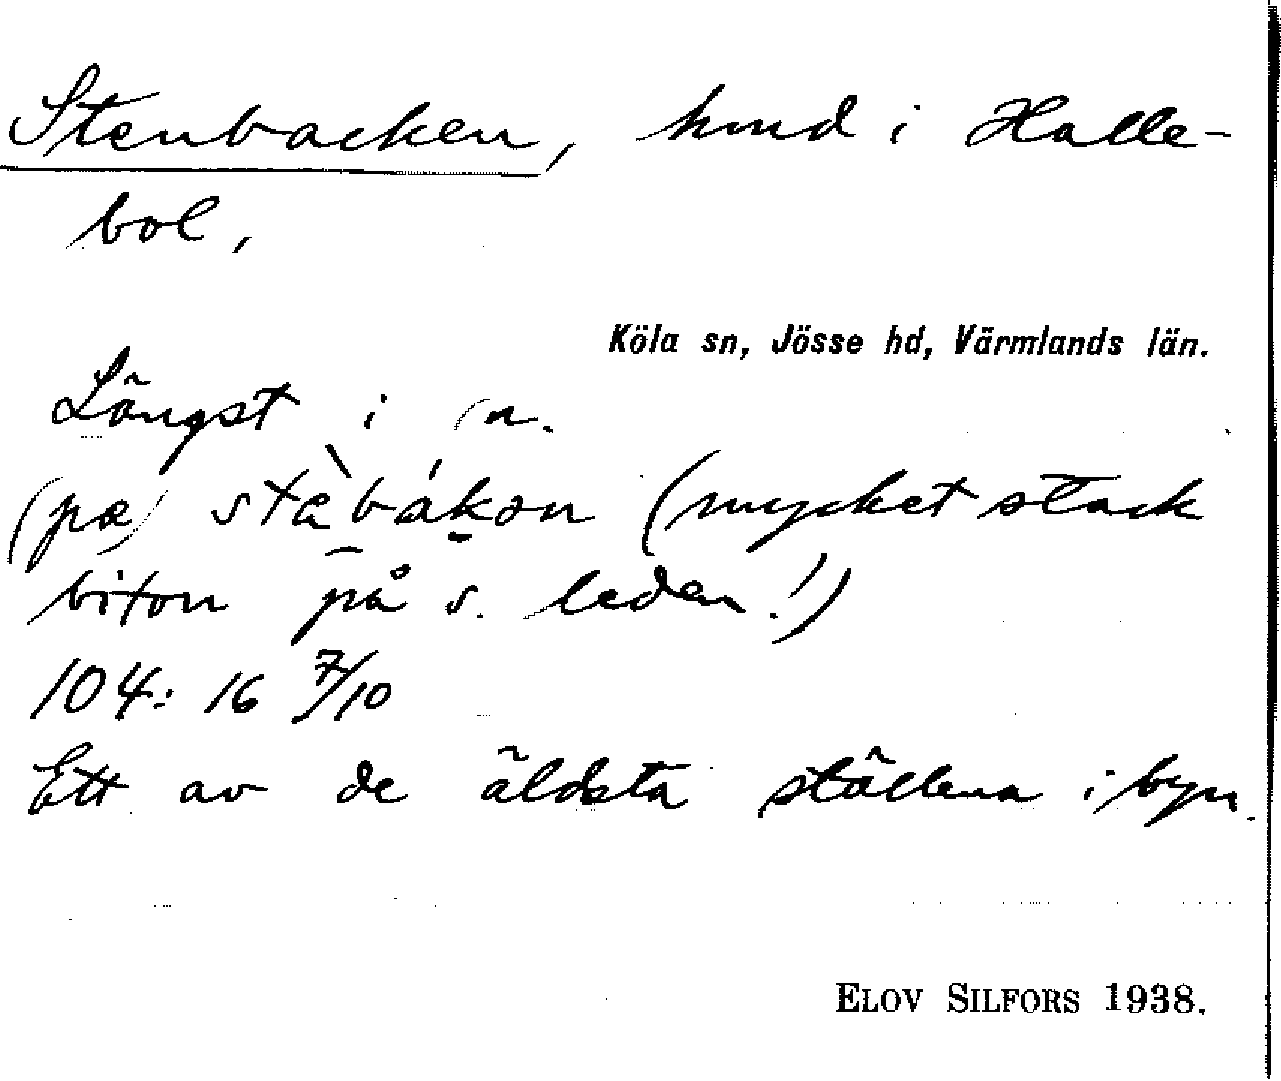 Stenbacken, hmd i Halle-
bol,
Köla sn, Jösse hd, Värmlands län.
Längst i n.
(pæ) stèbákən (mycket stark
biton på s. leden!)
104: 16 7/10
Ett av de äldsta ställena i byn.
ELOV SILFORS 1938.